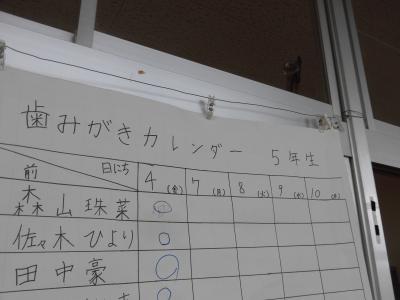 歯みがきカレンダー 5年生
前 日にち 4(金) 7(月) 8(火) 9(水) 10(木)
森山珠菜
佐々木ひより
田中豪